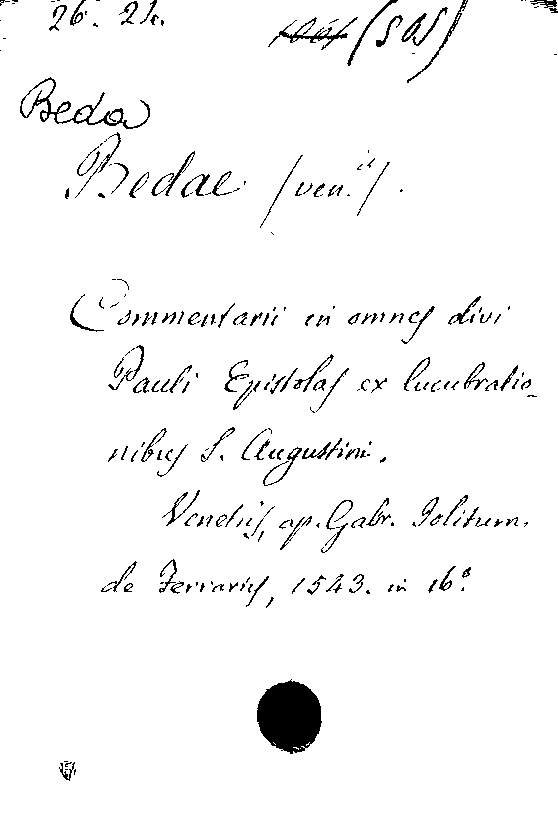 26. 21.
(505)
Beda
Bedae (ven.li).
Commentarii in omnes divi
Pauli Epistolas ex lucubratio-
nibus S. Augustini.
Venetiis, ap. Gabr. Iolitum.
de Ferrariis, 1543. in 16°.